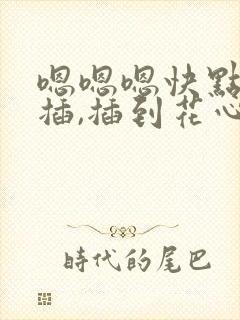 嗯嗯嗯快點
插,插到花心
時代的尾巴